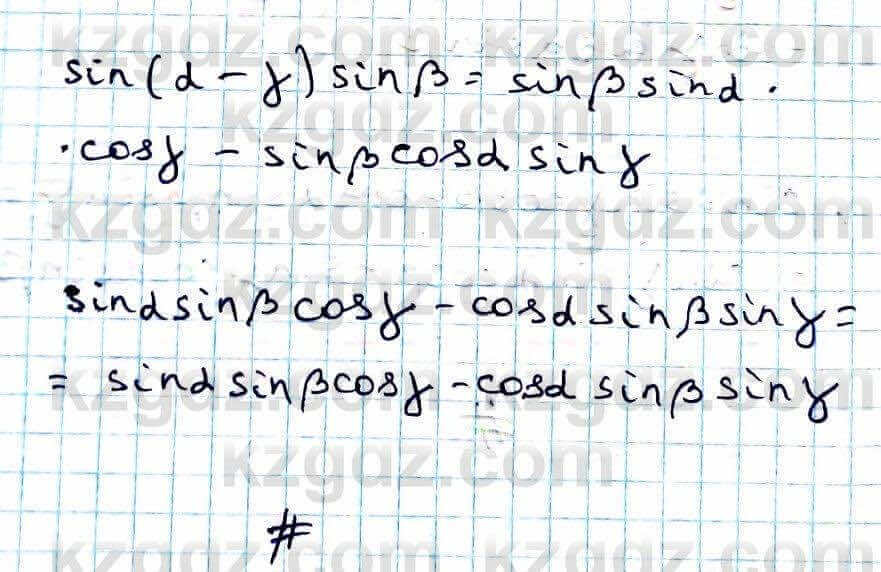 kzgdz.com kzgdz.com
sin(α - γ) sinβ = sinβ sinα ·
kzgdz.com
· cosγ - sinβ cosα sinγ
kzgdz.com kzgdz.com
kzgdz.com
sinα sinβ cosγ - cosα sinβ sinγ =
= sinα sinβ cosγ - cosα sinβ sinγ
kzgdz.com kzgdz.com
kzgdz.com
#
kzgdz.com kzgdz.com